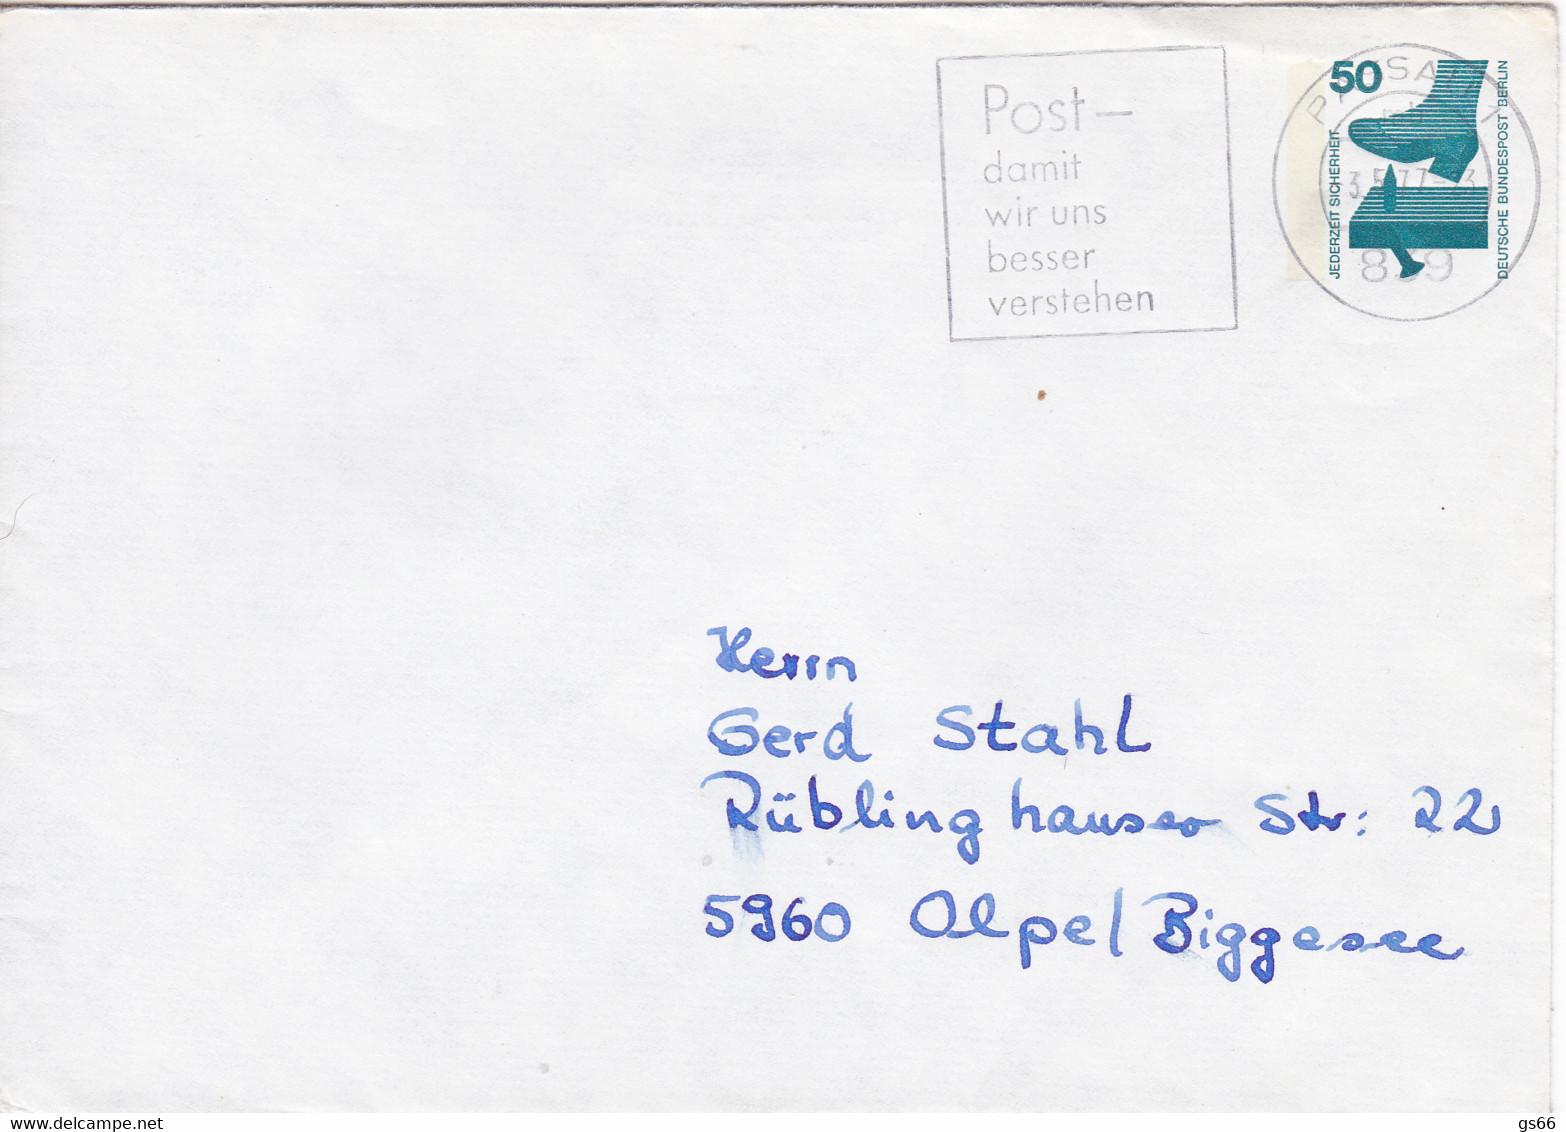 Post–
damit
wir uns
besser
verstehen
PASSAU 1
50
JEDERZEIT SICHERHEIT
DEUTSCHE BUNDESPOST BERLIN
839
Herrn
Gerd Stahl
Rüblinghauser Str: 22
5960 Olpe/Biggesee
www.delcampe.net
gs66